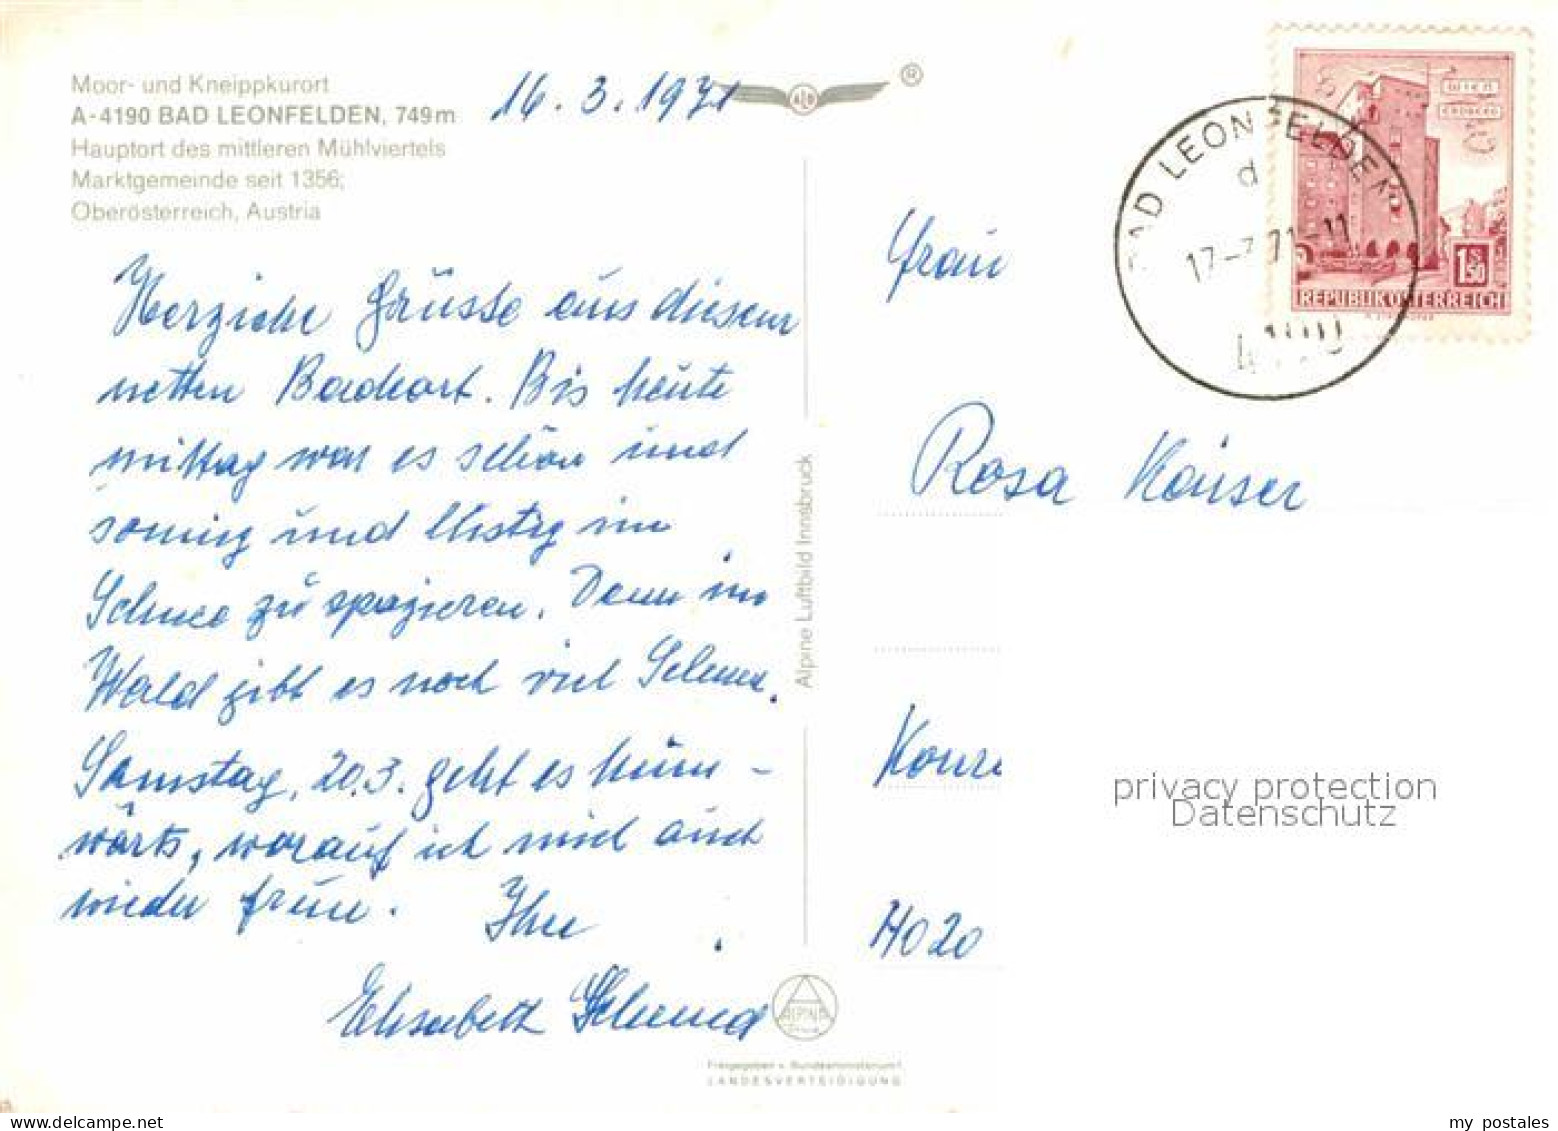 Moor- und Kneippkurort
A-4190 BAD LEONFELDEN, 749m
Hauptort des mittleren Mühlviertels
Marktgemeinde seit 1356;
Oberösterreich, Austria
16.3.1971
Herzliche Grüsse aus diesem
netten Badeort. Bis heute
mittag war es schön und
sonnig und lustig im
Schnee zu spazieren. Denn im
Wald gibt es noch viel Schnee.
Samstag, 20.3. geht es heim-
wärts, worauf ich mich auch
wieder freue. Ihre
Elisabeth Schmid
Alpine Luftbild Innsbruck
ALPINE
Freigegeben v. Bundesministerium f.
LANDESVERTEIDIGUNG
BAD LEONFELDEN
d
17-3.71-11
4190
WIEN
ERDBERG
1S50
REPUBLIK ÖSTERREICH
Frau
Rosa Kaiser
Konra
4020
privacy protection
Datenschutz
my postales